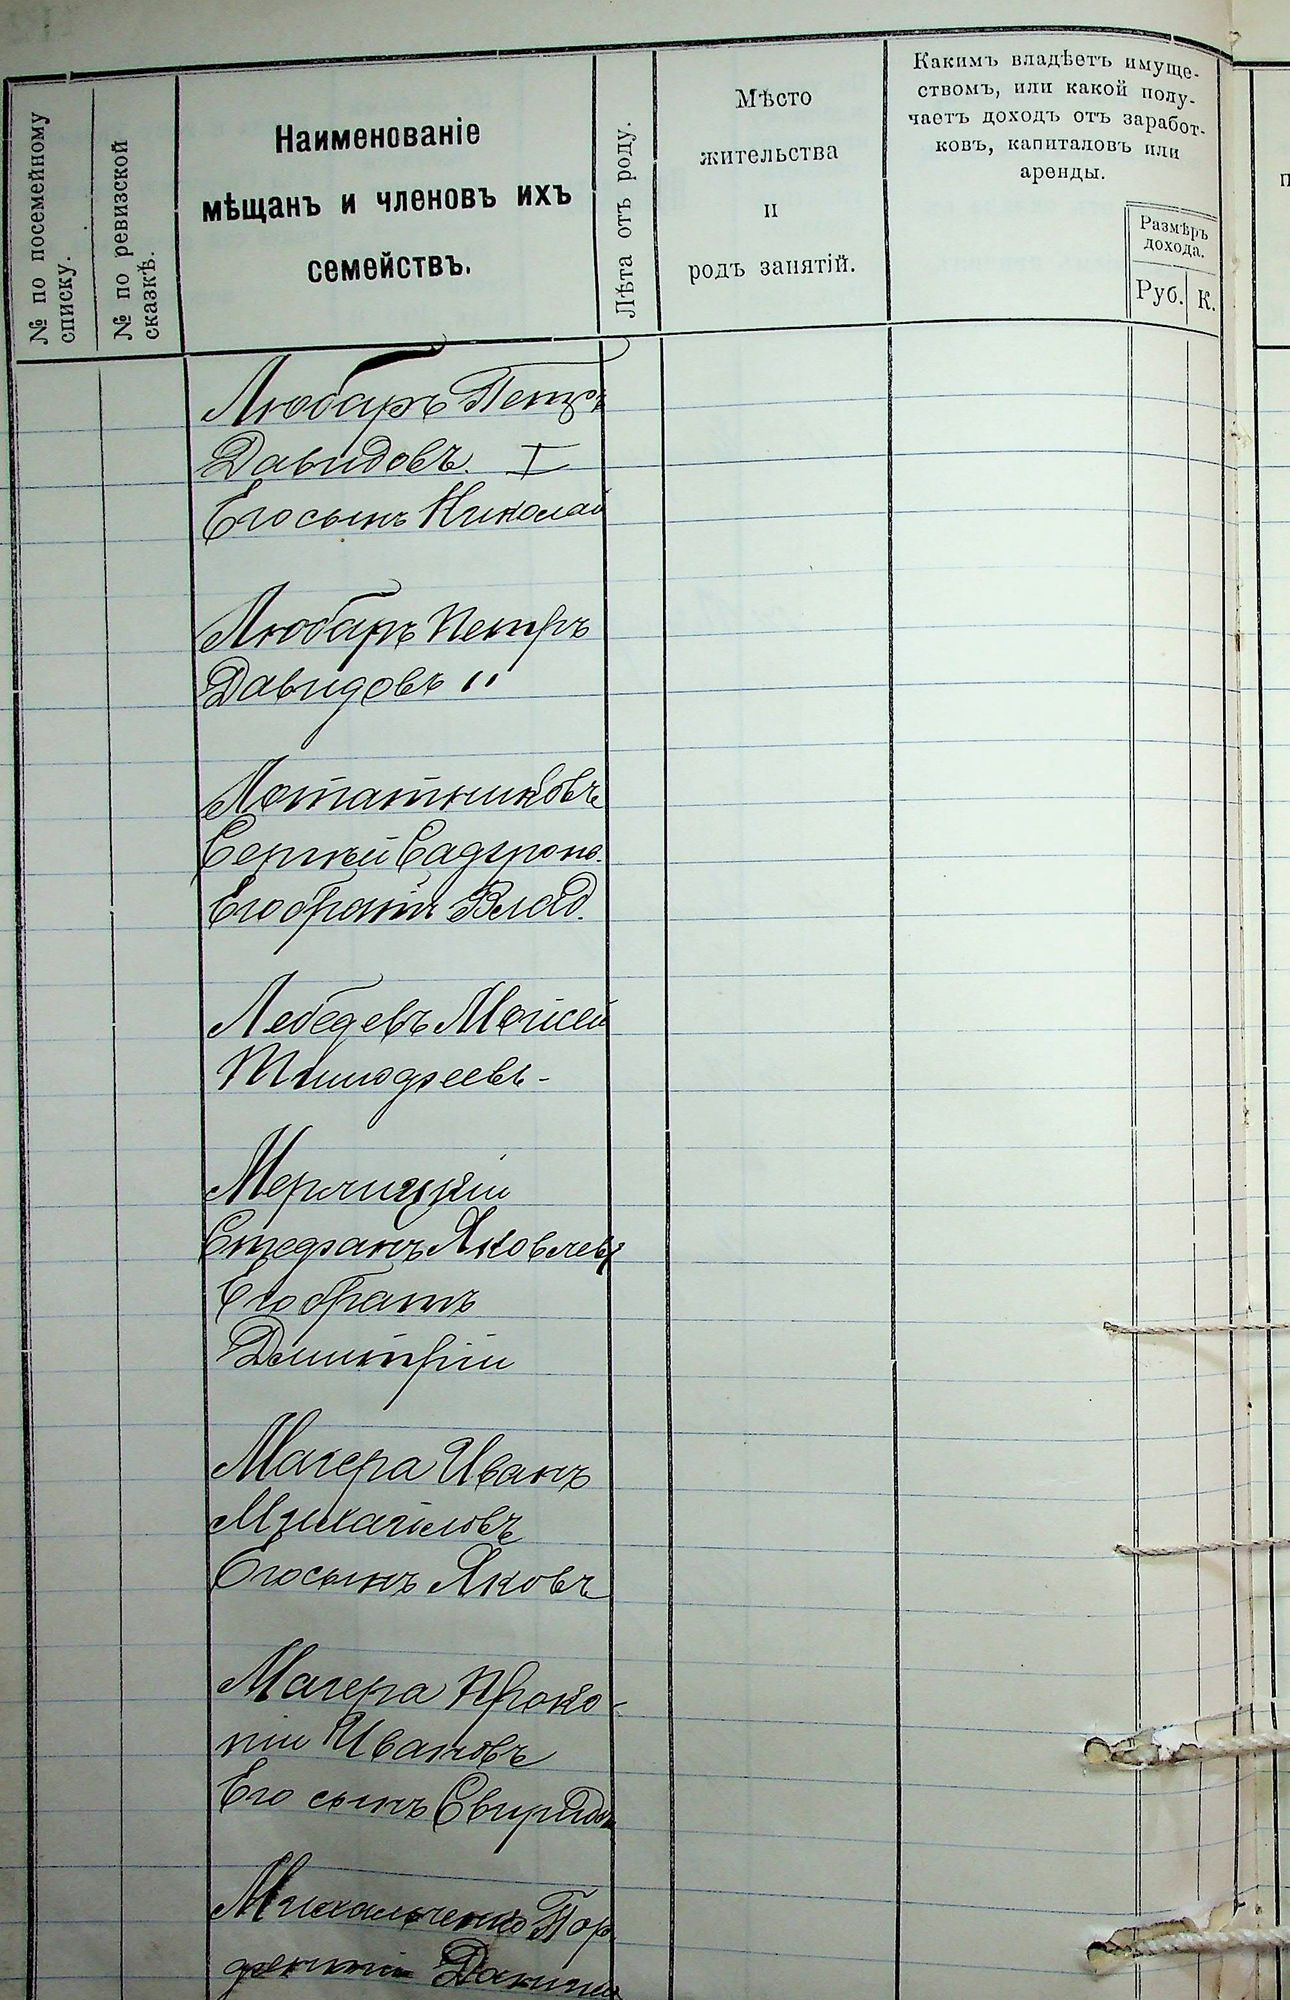 № по посемейному
списку.
№ по ревизской
сказкѣ.
Наименованіе
мѣщанъ и членовъ ихъ
семействъ.
Лѣта отъ роду.
Мѣсто
жительства
и
родъ занятій.
Какимъ владѣетъ имуще-
ствомъ, или какой полу-
чаетъ доходъ отъ заработ-
ковъ, капиталовъ или
аренды.
Размѣръ
дохода.
Руб.
К.
Любаръ Петръ
Давидовъ. I
Его сынъ Николай
Любаръ Петръ
Давидовъ II
Сергѣй
Его братъ Влад.
Лебедевъ Моисей
Тимофеевъ-
Мерлицкій
Стефанъ Яковлевъ
Его братъ
Димитрій
Магера Иванъ
Михайловъ
Его сынъ Яковъ
Магера Проко-
пій Ивановъ
Его сынъ Свиридъ
Михальченко Пор
фентій